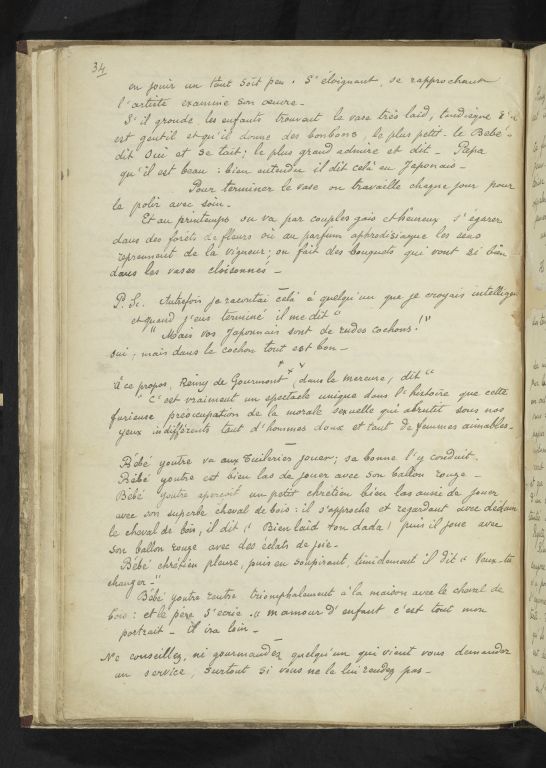 34
en jouir un tant soit peu. S'éloignant, se rapprochant
l'artiste examine son œuvre _
S'il gronde, les enfants trouvent le vase très laid, tandis que s'il
est gentil et qu'il donne des bonbons, le plus petit - le Bébé -
dit Oui et se tait; le plus grand admire et dit _ Papa
qu'il est beau : bien entendu il dit celà en Japonais _
Pour terminer le vase on travaille chaque jour pour
le polir avec soin _
Et au printemps on va par couples gais et heureux s'égarer
dans des forêts de fleurs où au parfum aphrodisiaque les sens
reprennent de la vigueur; on fait des bouquets qui vont si bien
dans les vases cloisonnés _
P. Sc. Autrefois je racontai celà à quelqu'un que je croyais intelligent
et quand j'eus terminé il me dit "
" Mais vos Japonnais sont de rudes cochons! "
oui, mais dans le cochon tout est bon _
à ce propos, Rémy de Gourmont, dans le mercure, dit "
" C'est vraiment un spectacle unique dans l'histoire que cette
furieuse préoccupation de la morale sexuelle qui abrutit sous nos
yeux indifférents tant d'hommes doux et tant de femmes aimables _
Bébé youtre va aux Tuileries jouer; sa bonne l'y conduit.
Bébé youtre est bien las de jouer avec son ballon rouge _
Bébé youtre aperçoit un petit chrétien bien las aussi de jouer
avec son superbe cheval de bois : il s'approche et regardant avec dédain
le cheval de bois, il dit " Bien laid ton dada! puis il joue avec
son ballon rouge avec des éclats de joie _
Bébé chrétien pleure, puis en soupirant, timidement il dit " Veux-tu
changer _ "
Bébé youtre rentre triomphalement à la maison avec le cheval de
bois : et le père s'écrie " mamour d'enfant c'est tout mon
portrait _ il ira loin _
Ne conseillez, ni gourmandez quelqu'un qui vient vous demander
un service, surtout si vous ne le lui rendez pas _